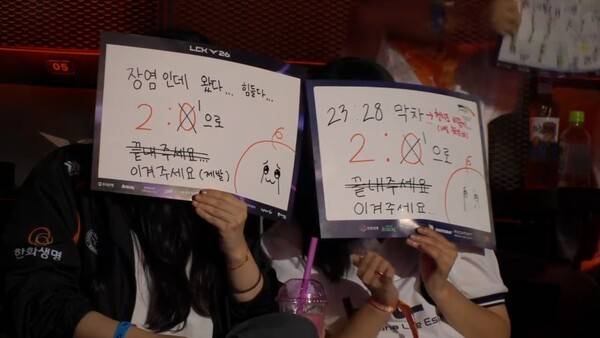 05
LCK 26
장염인데 왔다... 힘들다...
2:0 1 으로
끝내주세요...
이겨주세요 (제발)
한화생명
23:28 막차
2:0 1 으로
끝내주세요
이겨주세요...